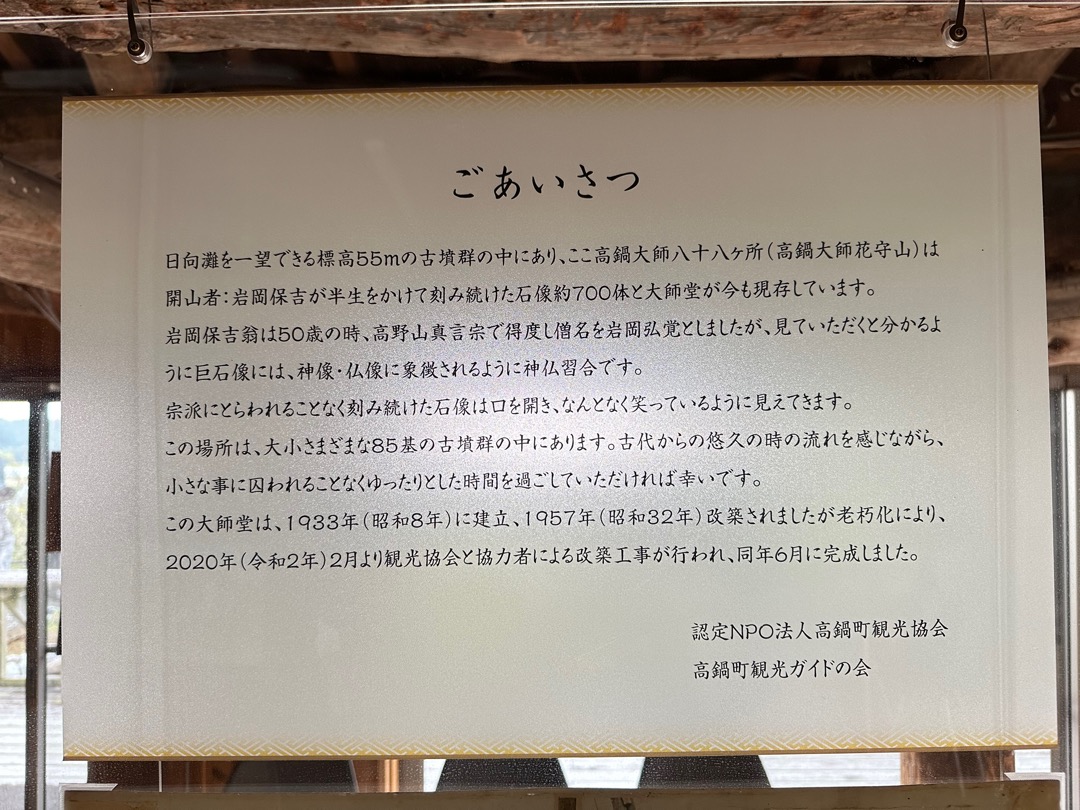 ごあいさつ
日向灘を一望できる標高55mの古墳群の中にあり、ここ高鍋大師八十八ヶ所(高鍋大師花守山)は
開山者：岩岡保吉が半生をかけて刻み続けた石像約700体と大師堂が今も現存しています。
岩岡保吉翁は50歳の時、高野山真言宗で得度し僧名を岩岡弘覚としましたが、見ていただくと分かるよ
うに巨石像には、神像・仏像に象徴されるように神仏習合です。
宗派にとらわれることなく刻み続けた石像は口を開き、なんとなく笑っているように見えてきます。
この場所は、大小さまざまな85基の古墳群の中にあります。古代からの悠久の時の流れを感じながら、
小さな事に囚われることなくゆったりとした時間を過ごしていただければ幸いです。
この大師堂は、1933年(昭和8年)に建立、1957年(昭和32年)改築されましたが老朽化により、
2020年(令和2年)2月より観光協会と協力者による改築工事が行われ、同年6月に完成しました。
認定NPO法人高鍋町観光協会
高鍋町観光ガイドの会